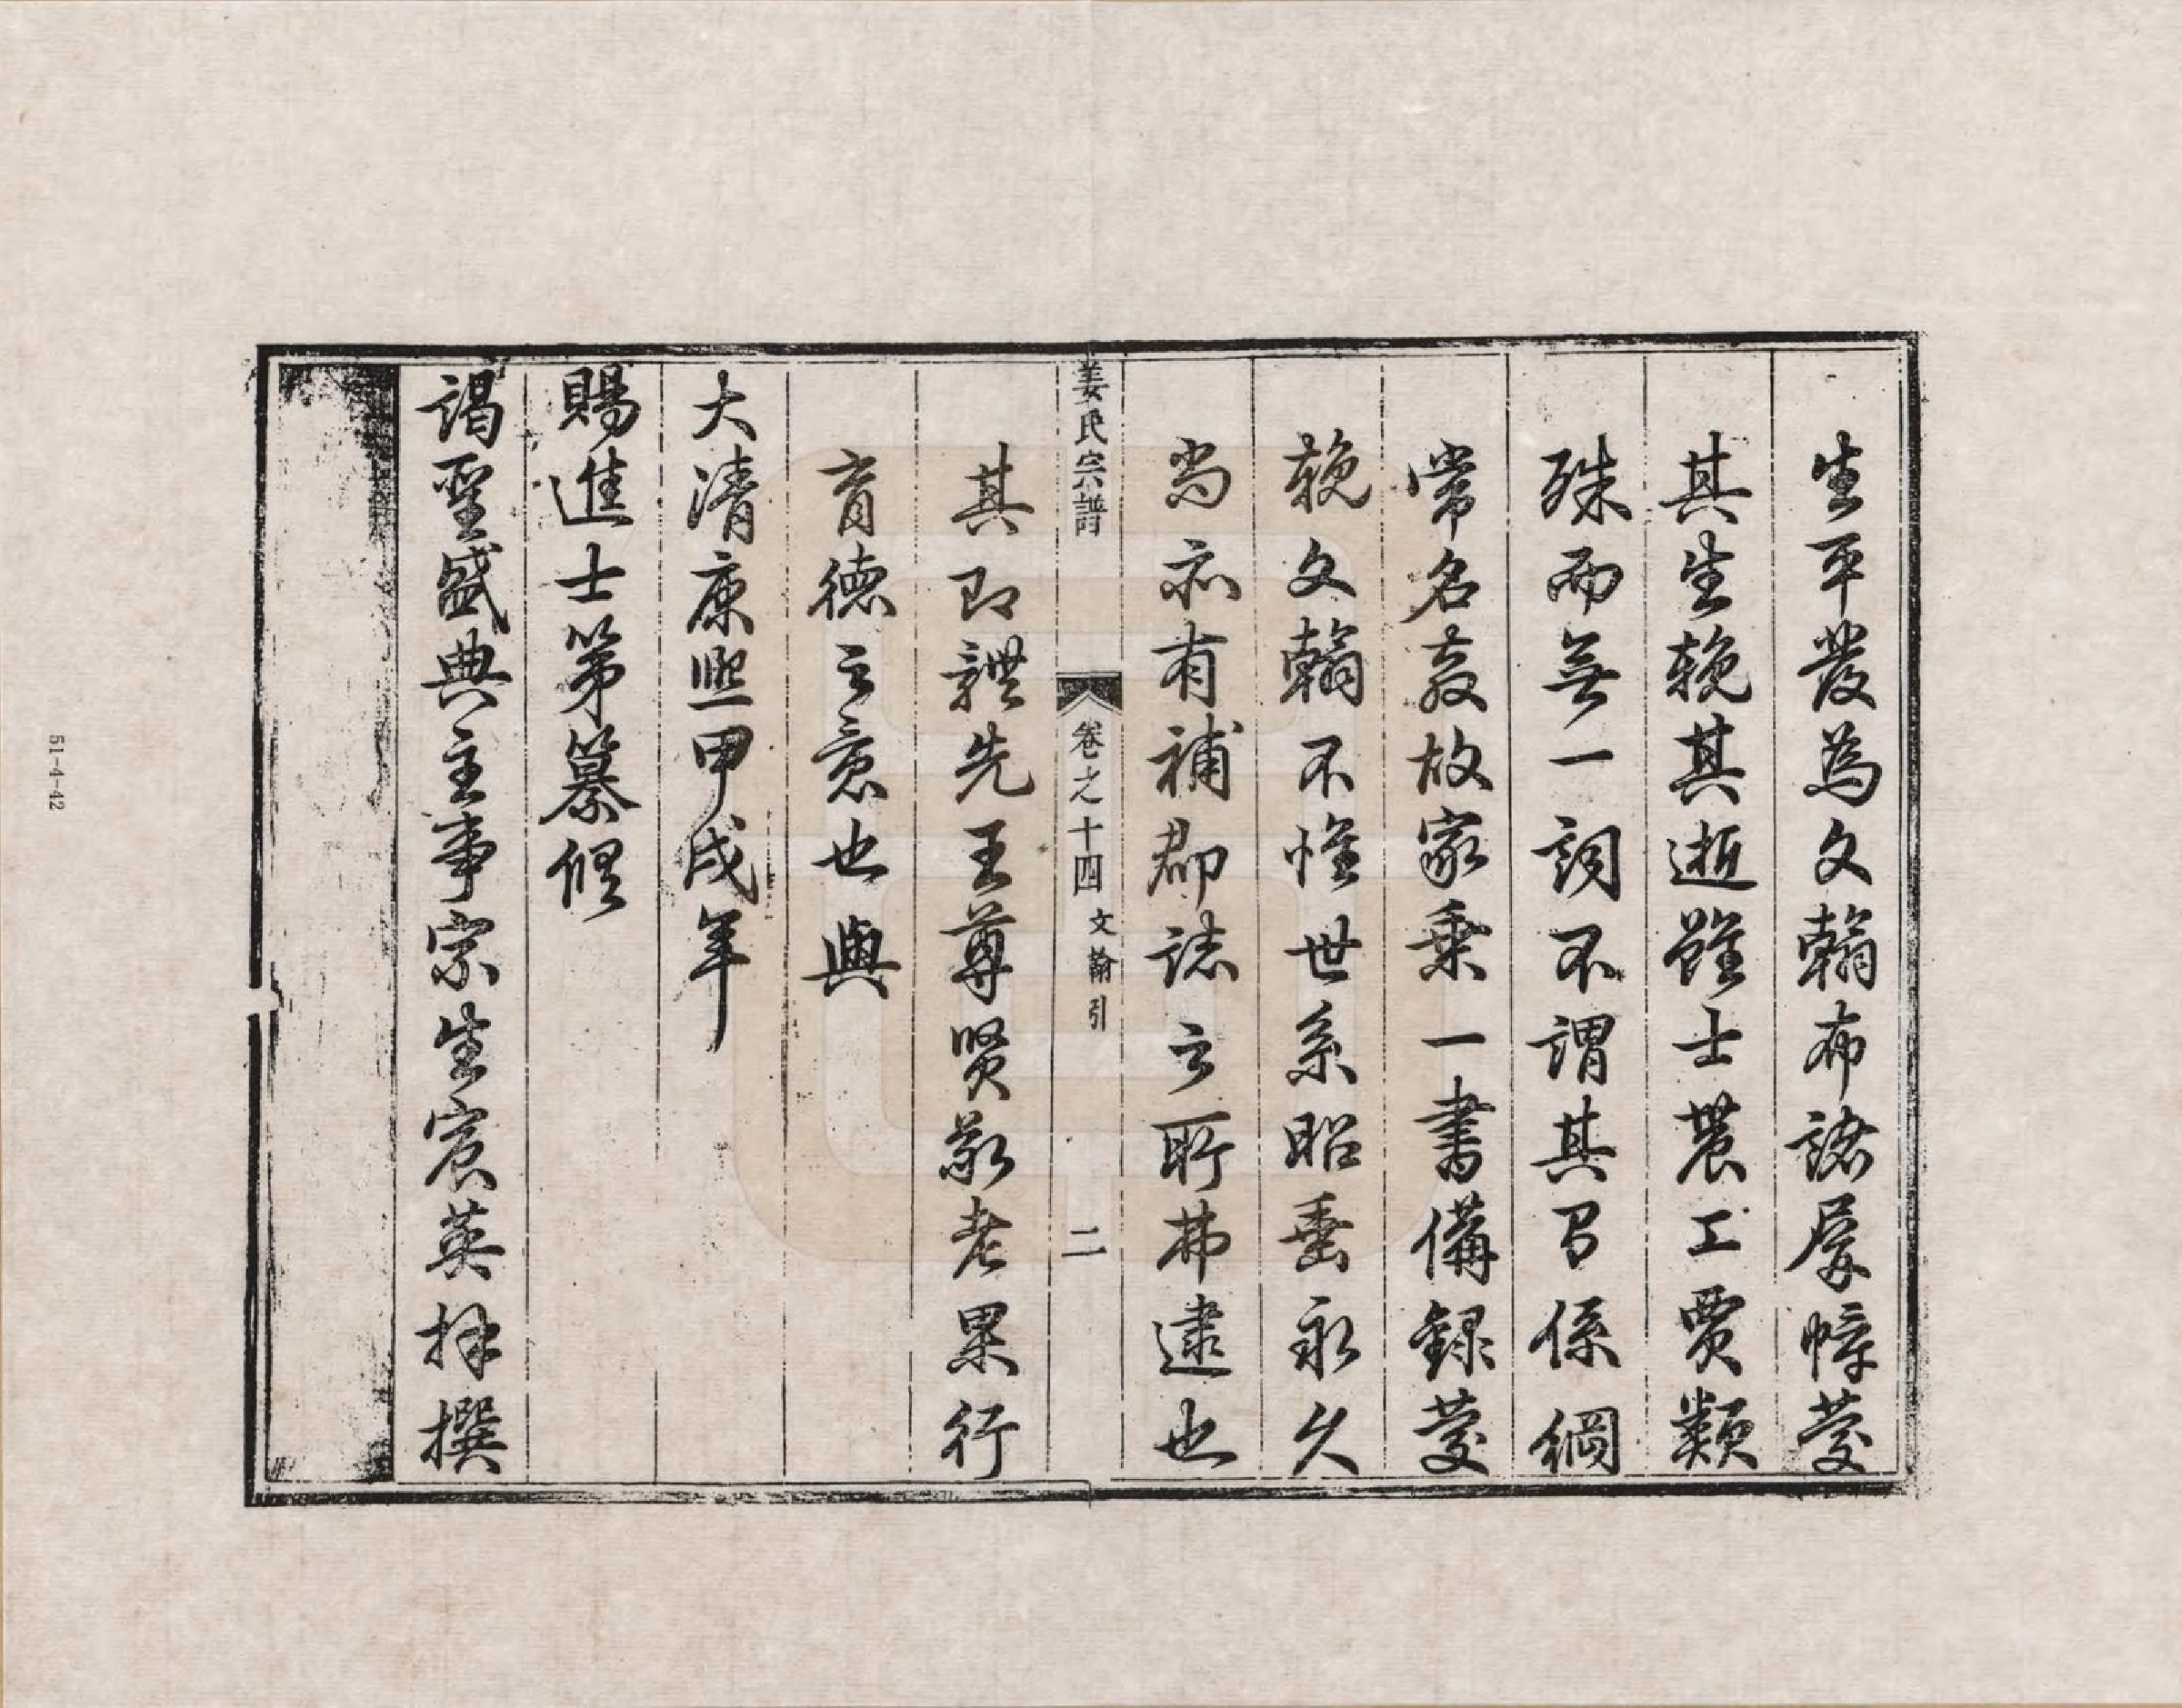 生平發為文翰布諸屏幛慶
其生輓其逝雖士農工賈類
殊而無一詞不謂其有係綱
常名教故家乘一書備錄慶
輓文翰不惟世系昭垂永久
尚亦有補郡誌之所弗逮也
姜氏宗譜 卷之十四 文翰引 二
其即體先王尊賢敬老果行
育德之意也與
大清康熙甲戌年
賜進士第纂修
謁聖盛典主事宗生宸英拜撰
51-4-42